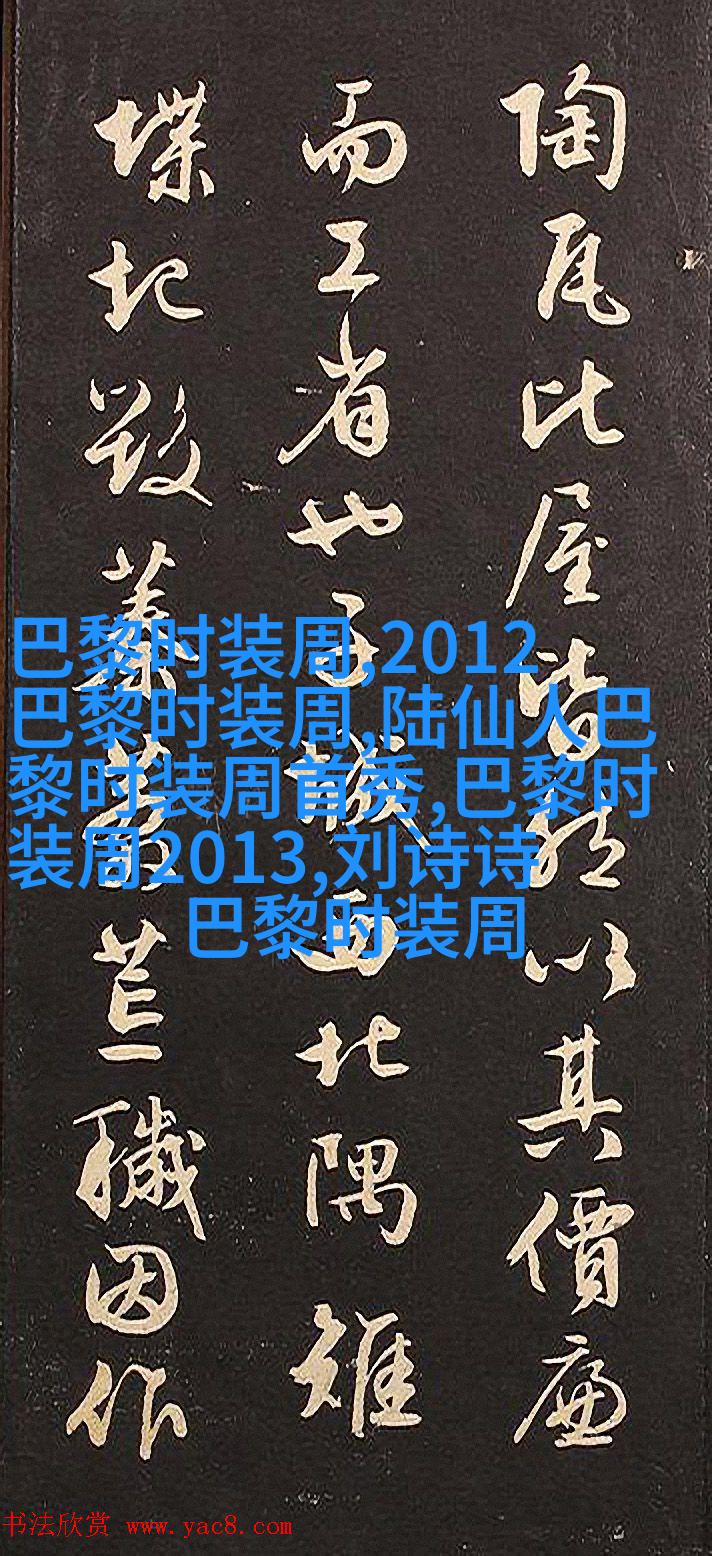 陶瓦比屋皆然以其價廉
而工省也子城西北隅雉
堞圮毀蓁莽荒穢因作
巴黎时装周,2012
巴黎时装周,陆仙人巴
黎时装周首秀,巴黎时
装周2013,刘诗诗
巴黎时装周
书法欣赏 www.yac8.com